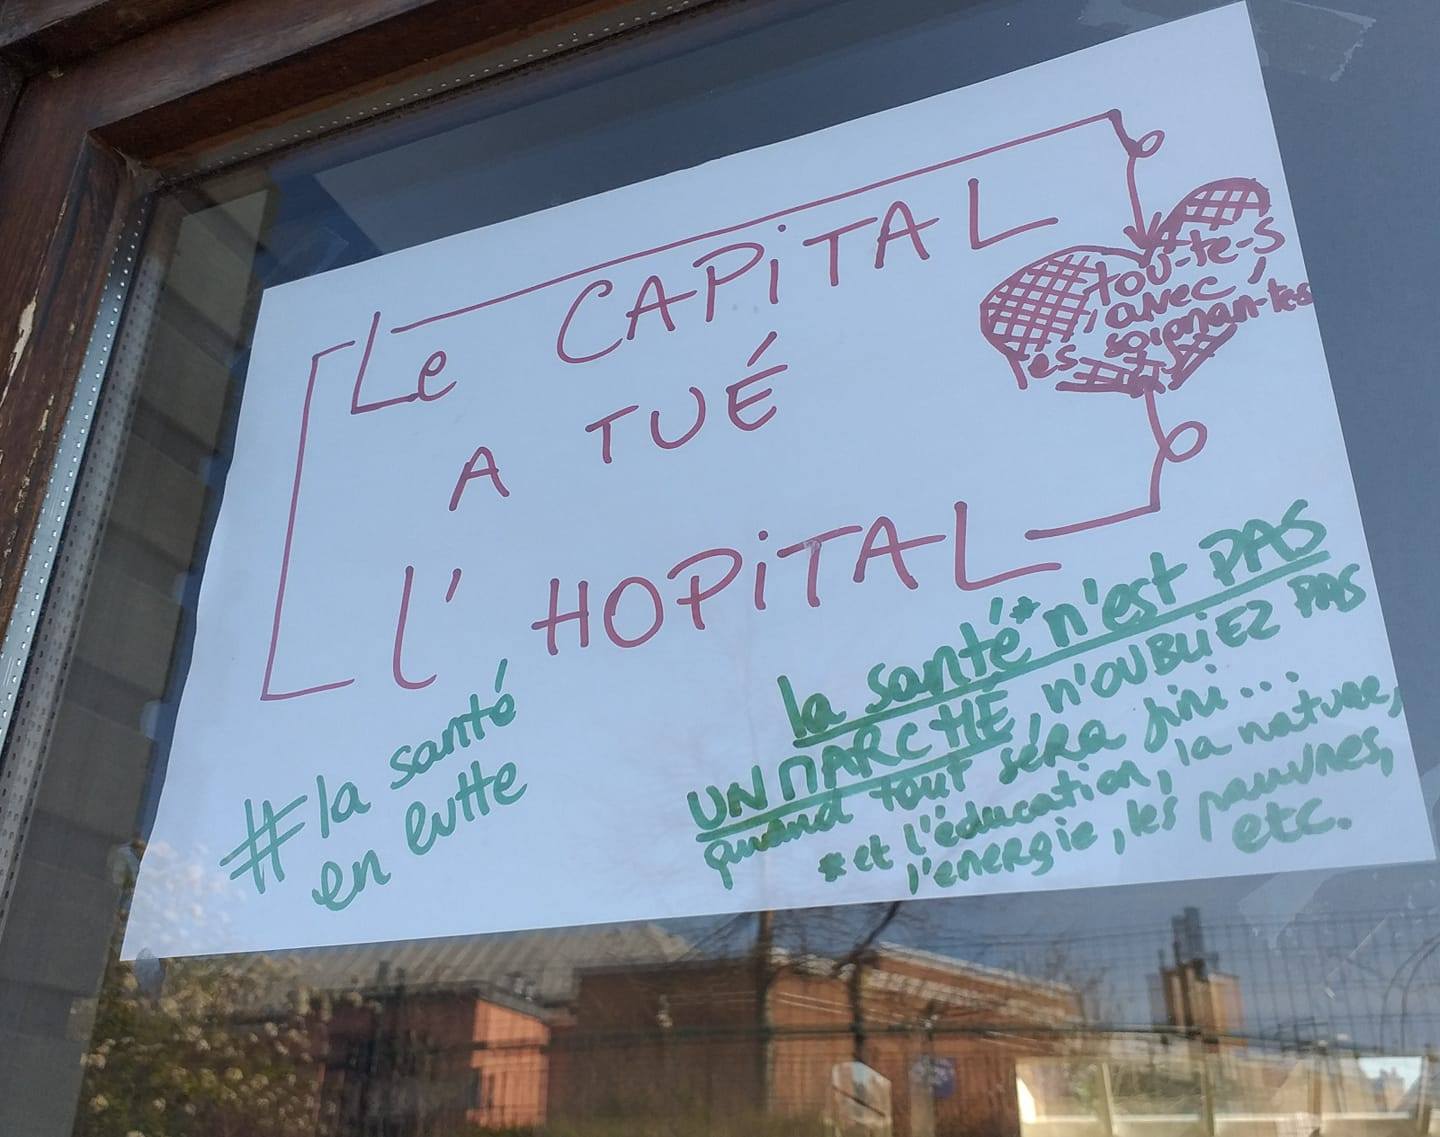 Le CAPiTAL
A TUÉ
L'HOPiTAL
tou-te-s
avec
les soignan-tes
#la santé
en lutte
la santé* n'est PAS
UN MARCHÉ, N'OUBLiEZ PAS
quand tout séra fini...
*et l'éducation, la nature,
l'energie, les pauvres,
etc.